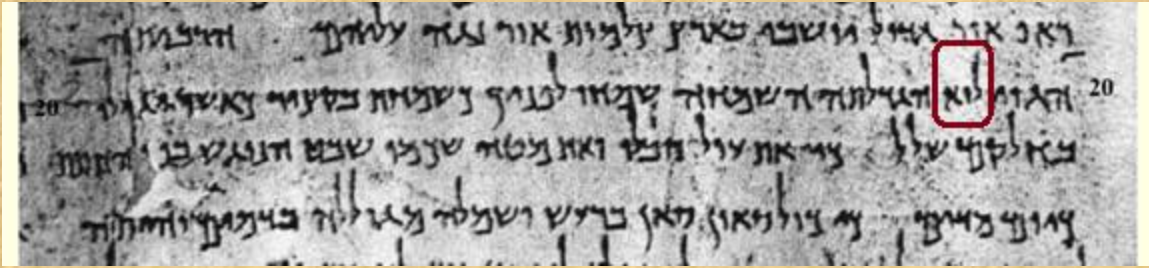 ראו אור גדול יושבי בארץ צלמות אור נגה עליהם הרביתה
20 הגוי לוא הגדלתה השמחה שמחו לפניך כשמחת בקציר כאשר יגילו 20
בחלקם שלל כי את עול סבלו ואת מטה שכמו שבט הנוגש בו החתת
כיום מדים כי כול סאון סאן ברעש ושמלה מגוללה בדמים והייתה